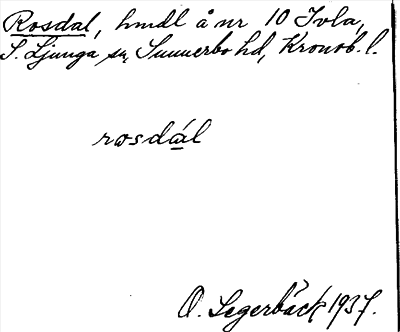 Rosdal, hmdl å nr 10 Ivla,
S. Ljunga sn, Sunnerbo hd, Kronob. l.
rosdál
O. Segerbäck 1937.